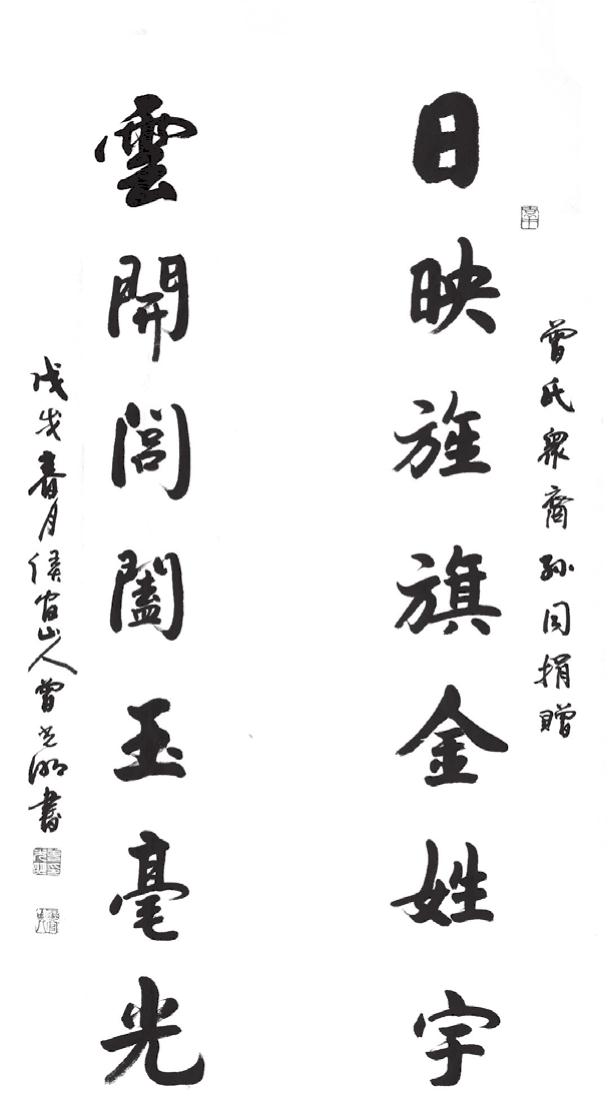 曾氏眾裔孫同捐贈
日映旌旗金姓宇
雲開閶闔玉毫光
戊戌春月侯官山人曾光明書